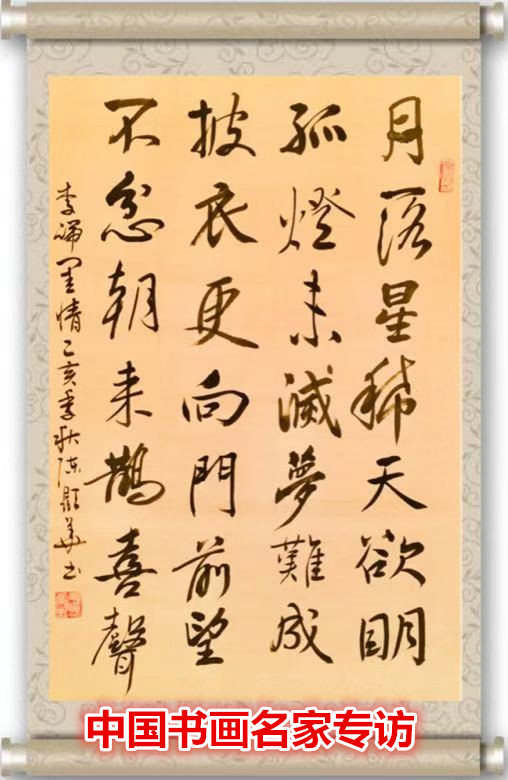 月落星稀天欲明
孤燈未滅夢難成
披衣更向門前望
不忿朝来鵲喜聲
李端閨情乙亥季秋陈顯華书
中国书画名家专访